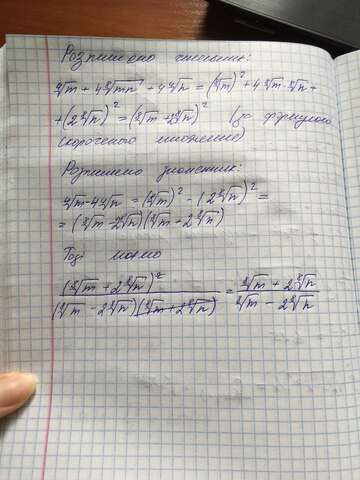 Розпишемо чисельник:
⁴√m + 4⁸√mn + 4⁴√n = (⁸√m)² + 4⁸√m·⁸√n +
+ (2⁸√n)² = (⁸√m + 2⁸√n)² (за формулою
скороченого множення)
Розпишемо знаменник:
⁴√m - 4⁴√n = (⁸√m)² - (2⁸√n)² =
= (⁸√m - 2⁸√n)(⁸√m + 2⁸√n)
Тоді маємо
(⁸√m + 2⁸√n)² / (⁸√m - 2⁸√n)(⁸√m + 2⁸√n) = ⁸√m + 2⁸√n / ⁸√m - 2⁸√n